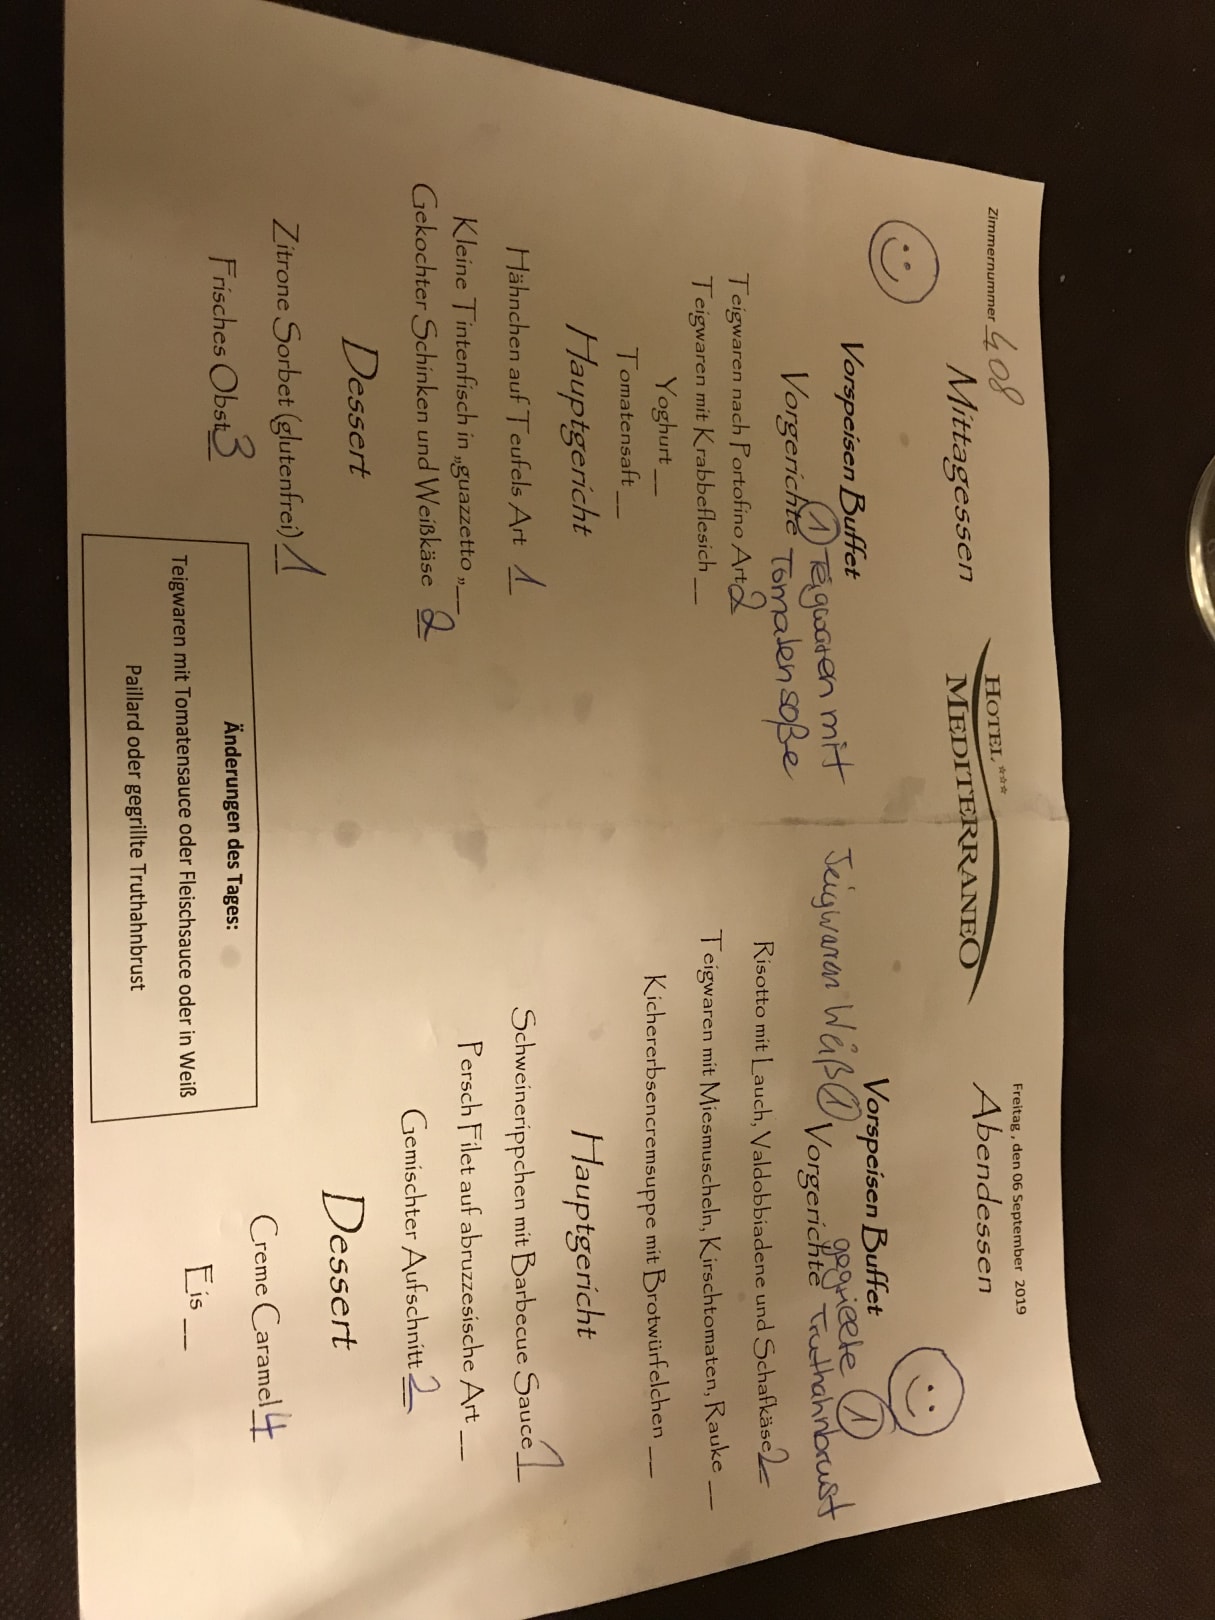 Zimmernummer 408
Mittagessen
Vorspeisen Buffet
① Teigwaren mit
Vorgerichte Tomatensoße
Teigwaren nach Portofino Art 2
Teigwaren mit Krabbeflesich __
Yoghurt __
Tomatensaft __
Hauptgericht
Hähnchen auf Teufels Art 1
Kleine Tintenfisch in „guazzetto „__
Gekochter Schinken und Weißkäse 2
Dessert
Zitrone Sorbet (glutenfrei) 1
Frisches Obst 3
HOTEL ***
MEDITERRANEO
Freitag , den 06 September 2019
Abendessen
Vorspeisen Buffet
Teigwaren Weiß ① gegrieete ①
Vorgerichte Truthahnbrust
Risotto mit Lauch, Valdobbiadene und Schafkäse 2
Teigwaren mit Miesmuscheln, Kirschtomaten, Rauke __
Kichererbsencremsuppe mit Brotwürfelchen __
Hauptgericht
Schweinerippchen mit Barbecue Sauce 1
Persch Filet auf abruzzesische Art __
Gemischter Aufschnitt 2
Dessert
Creme Caramel 4
Eis __
Änderungen des Tages:
Teigwaren mit Tomatensauce oder Fleischsauce oder in Weiß
Paillard oder gegrillte Truthahnbrust